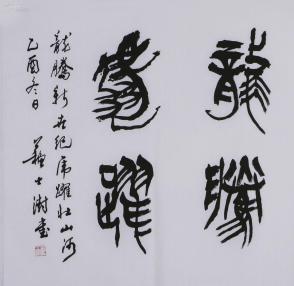 龍騰
虎躍
龍騰新世紀虎躍壯山河
乙酉冬日
蘇士澍書